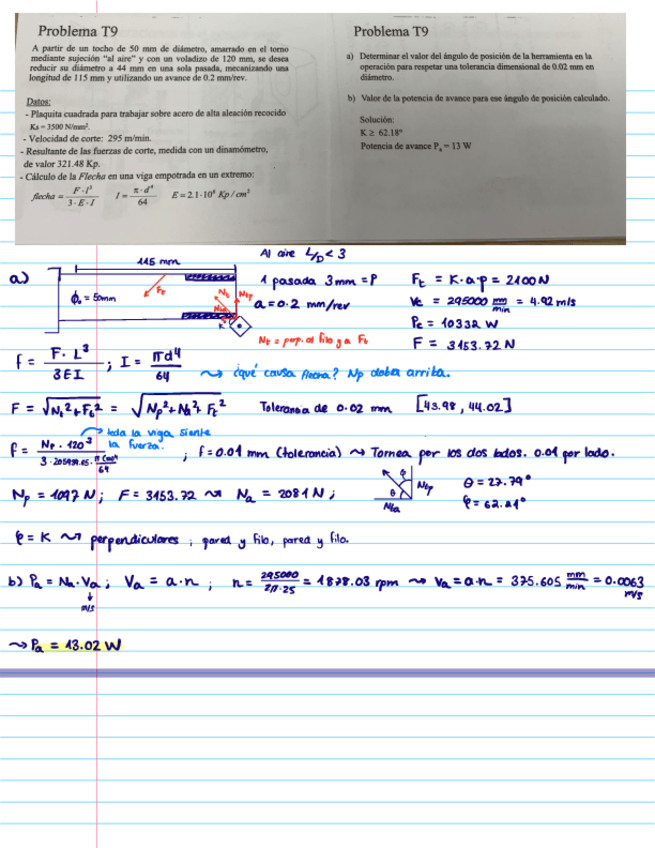 Problema T9
A partir de un tocho de 50 mm de diámetro, amarrado en el torno
mediante sujeción "al aire" y con un voladizo de 120 mm, se desea
reducir su diámetro a 44 mm en una sola pasada, mecanizando una
longitud de 115 mm y utilizando un avance de 0.2 mm/rev.
Datos:
- Plaquita cuadrada para trabajar sobre acero de alta aleación recocido
Ks = 3500 N/mm².
- Velocidad de corte: 295 m/min.
- Resultante de las fuerzas de corte, medida con un dinamómetro,
de valor 321.48 Kp.
- Cálculo de la Flecha en una viga empotrada en un extremo:
flecha = F·l³ / 3·E·I   I = π·d⁴ / 64   E = 2.1·10⁶ Kp/cm²
Problema T9
a) Determinar el valor del ángulo de posición de la herramienta en la
operación para respetar una tolerancia dimensional de 0.02 mm en
diámetro.
b) Valor de la potencia de avance para ese ángulo de posición calculado.
Solución:
K ≥ 62.18°
Potencia de avance Pa = 13 W
Al aire L/D < 3
a)
115 mm
ϕ₀ = 50mm
Ft
Nt
Ntp
K
1 pasada 3mm = P
a = 0.2 mm/rev
Nt = perp. al filo y a Ft
Ft = K·a·p = 2100N
Vc = 295000 mm/min = 4.92 m/s
Pc = 10332 W
F = 3153.72 N
f = F·L³ / 3EI ; I = πd⁴ / 64
⤳ ¿qué causa flecha? Np dobla arriba.
F = √Nt²+Ft² = √Np²+Na²+Ft²
Tolerancia de 0.02 mm [43.98, 44.02]
toda la viga siente la fuerza.
f = Np·120³ / ; f = 0.01 mm (tolerancia) ⤳ Tornea por los dos lados. 0.01 por lado.
Np = 1097 N ; F = 3153.72 ⤳ Na = 2081 N ;
φ
θ
Ntp
Nta
θ = 27.79°
φ = 62.21°
φ = K ⤳ perpendiculares ; pared y filo, pared y filo.
b) Pa = Na·Va ; Va = a·n ; n = 295000 / 2π·25 = 1878.03 rpm ⤳ Va = a·n = 375.605 mm/min = 0.0063 m/s
m/s
⤳ Pa = 13.02 W